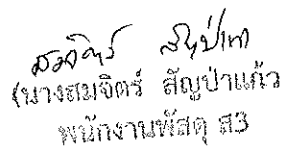 สมจิตร์ สัญป่าแก้ว
(นางสมจิตร์ สัญป่าแก้ว
พนักงานพัสดุ ส3